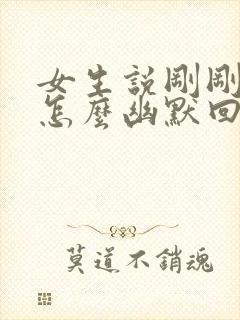 女生說剛剛
怎麼幽默回
莫道不銷魂